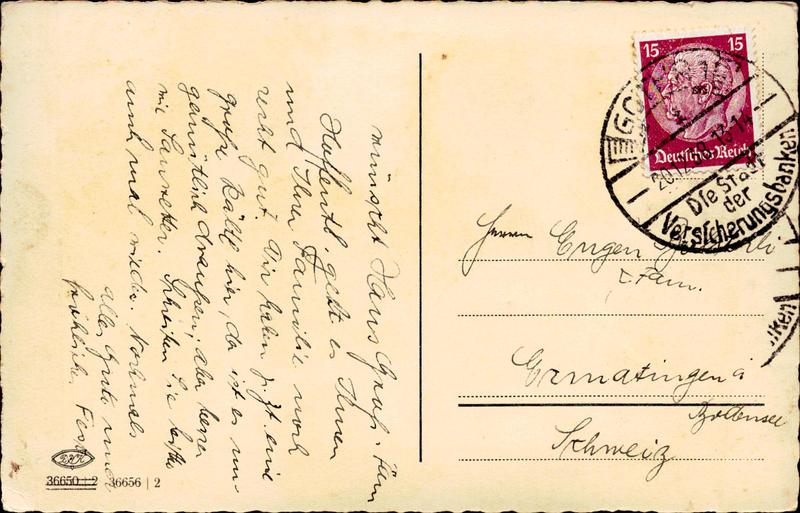 wünscht Hans Graf. Fam
Hoffentl. geht es Ihnen
und Ihrer Familie noch
recht gut. Wir haben jetzt eine
große Kälte hier, da ist es un-
gemütlich draußen, aber besser
wie Schreiben Sie bitte
auch mal wieder. Nochmals
alles Gute und
fröhliche Fest
36650 | 2 36656 | 2
15 15
Deutsches Reich
20.12.38.13-14
Die Stadt
der
Versicherungsbanken
nken
Herrn Eugen
& Fam.
Ermatingen a
Bodensee
Schweiz